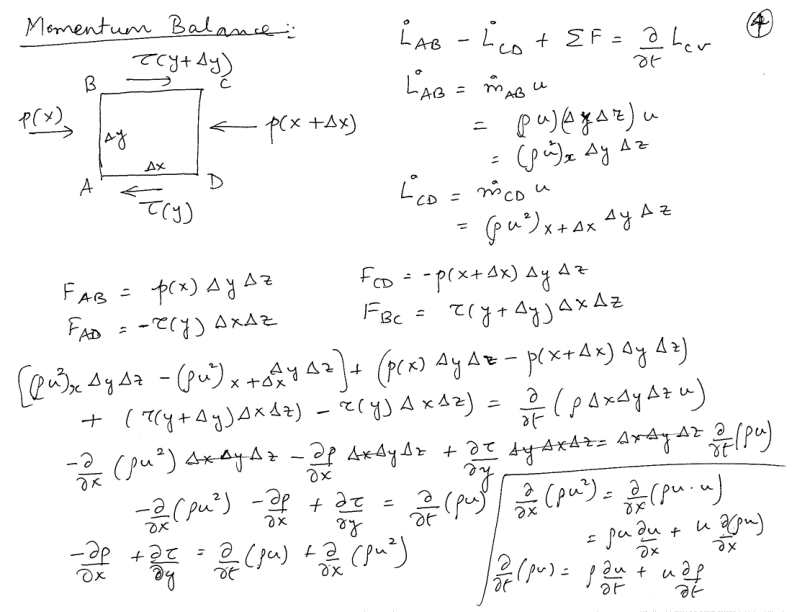 Momentum Balance:
④
τ(y+Δy)
B C
p(x) Δy p(x+Δx)
Δx
A D
τ(y)
L̊_AB - L̊_CD + ΣF = ∂/∂t L_cv
L̊_AB = m̊_AB u
= (ρu)(ΔyΔz) u
= (ρu²)_x Δy Δz
L̊_CD = m̊_CD u
= (ρu²)_x+Δx Δy Δz
F_AB = p(x) Δy Δz
F_CD = -p(x+Δx) Δy Δz
F_AD = -τ(y) ΔxΔz
F_BC = τ(y+Δy) ΔxΔz
[(ρu²)_x Δy Δz - (ρu²)_x+Δx Δy Δz] + (p(x) Δy Δz - p(x+Δx) Δy Δz)
+ (τ(y+Δy)ΔxΔz) - τ(y) ΔxΔz) = ∂/∂t (ρ ΔxΔyΔz u)
-∂/∂x (ρu²) Δx Δy Δz - ∂p/∂x ΔxΔyΔz + ∂τ/∂y ΔyΔxΔz = ΔxΔyΔz ∂/∂t (ρu)
-∂/∂x (ρu²) - ∂p/∂x + ∂τ/∂y = ∂/∂t (ρu)
-∂p/∂x + ∂τ/∂y = ∂/∂t (ρu) + ∂/∂x (ρu²)
∂/∂x (ρu²) = ∂/∂x (ρu·u)
= ρu ∂u/∂x + u ∂(ρu)/∂x
∂/∂t (ρu) = ρ ∂u/∂t + u ∂ρ/∂t